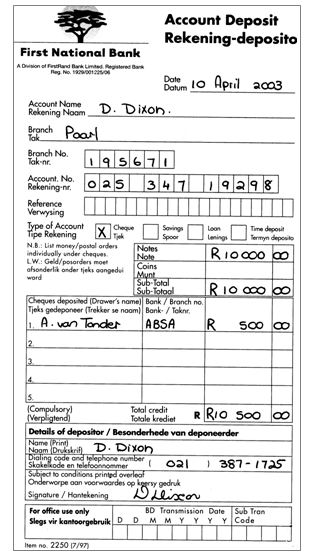 Account Deposit
Rekening-deposito
First National Bank
A Division of FirstRand Bank Limited. Registered Bank
Reg. No. 1929/001225/06
Date
Datum 10 April 2003
Account Name
Rekening Naam D. Dixon.
Branch
Tak Paarl
Branch No.
Tak-nr. 195671
Account. No.
Rekening-nr. 025 347 19298
Reference
Verwysing
Type of Account
Tipe Rekening X Cheque Tjek Savings Spaar Loan Lenings Time deposit Termyn deposito
N.B.: List money/postal orders
individually under cheques.
L.W.: Geld/posorders moet
afsonderlik onder tjeks aangedui
word
Notes
Note R 10 000 00
Coins
Munt
Sub-Total
Sub-Totaal R 10 000 00
Cheques deposited (Drawer's name) Bank / Branch no.
Tjeks gedeponeer (Trekker se naam) Bank- / Taknr.
1. A. van Tonder ABSA R 500 00
2.
3.
4.
5.
(Compulsory) Total credit
(Verpligtend) Totale krediet R R10 500 00
Details of depositor / Besonderhede van deponeerder
Name (Print)
Naam (Drukskrif) D. Dixon
Dialing code and telephone number
Skakelkode en telefoonnommer (021) 387-1725
Subject to conditions printed overleaf
Onderworpe aan voorwaardes op keersy gedruk
Signature / Hantekening DDixon
For office use only BD Transmission Date Sub Tran
Slegs vir kantoorgebruik D D M M Y Y Y Y Code
Item no. 2250 (7/97)